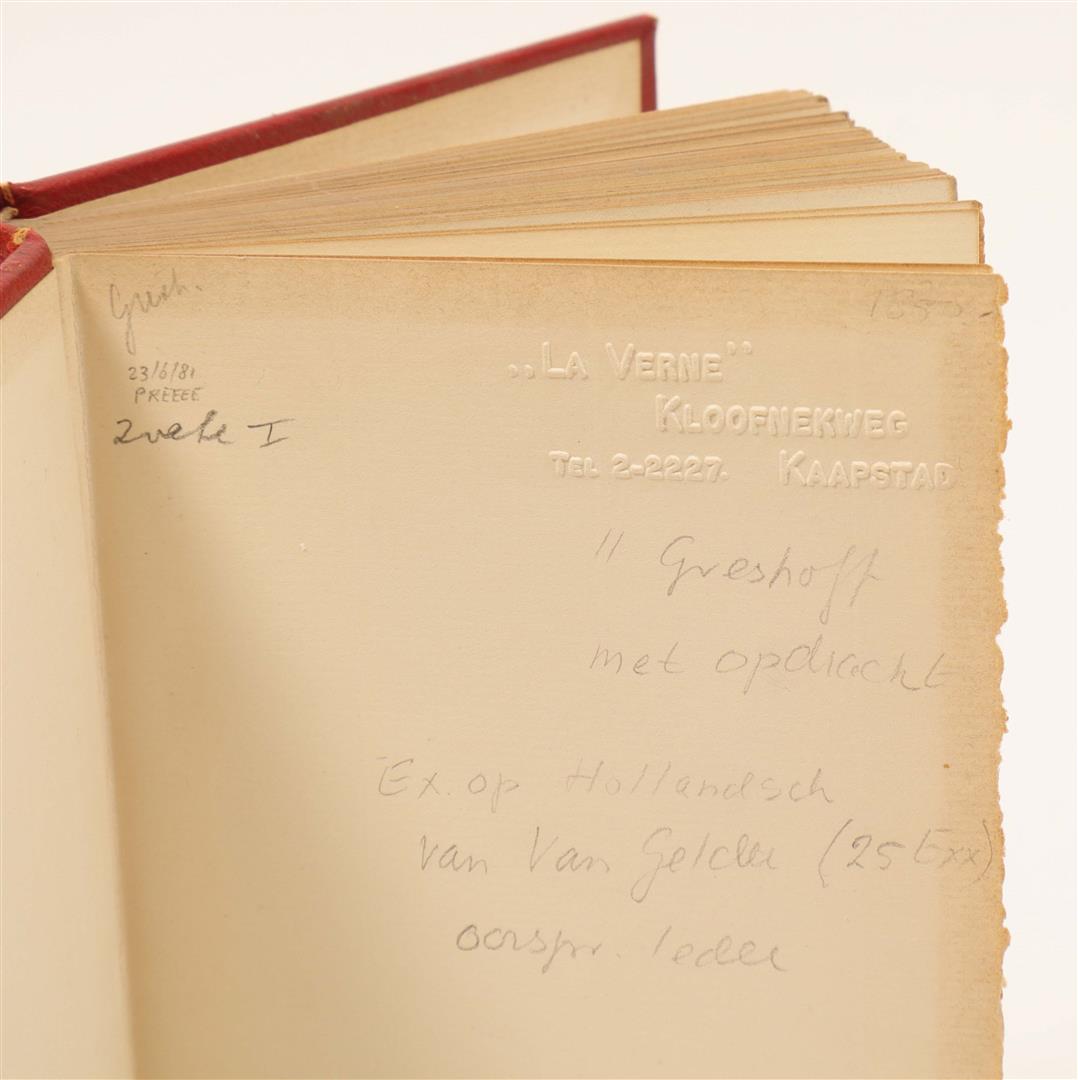 Gresh.
23/6/81
PREEEE
I
„LA VERNE”
KLOOFNEKWEG
TEL 2-2227. KAAPSTAD
" Greshoff
met opdracht
Ex. op Hollandsch
van Van Gelder (25 Exx)
oorspr. leder